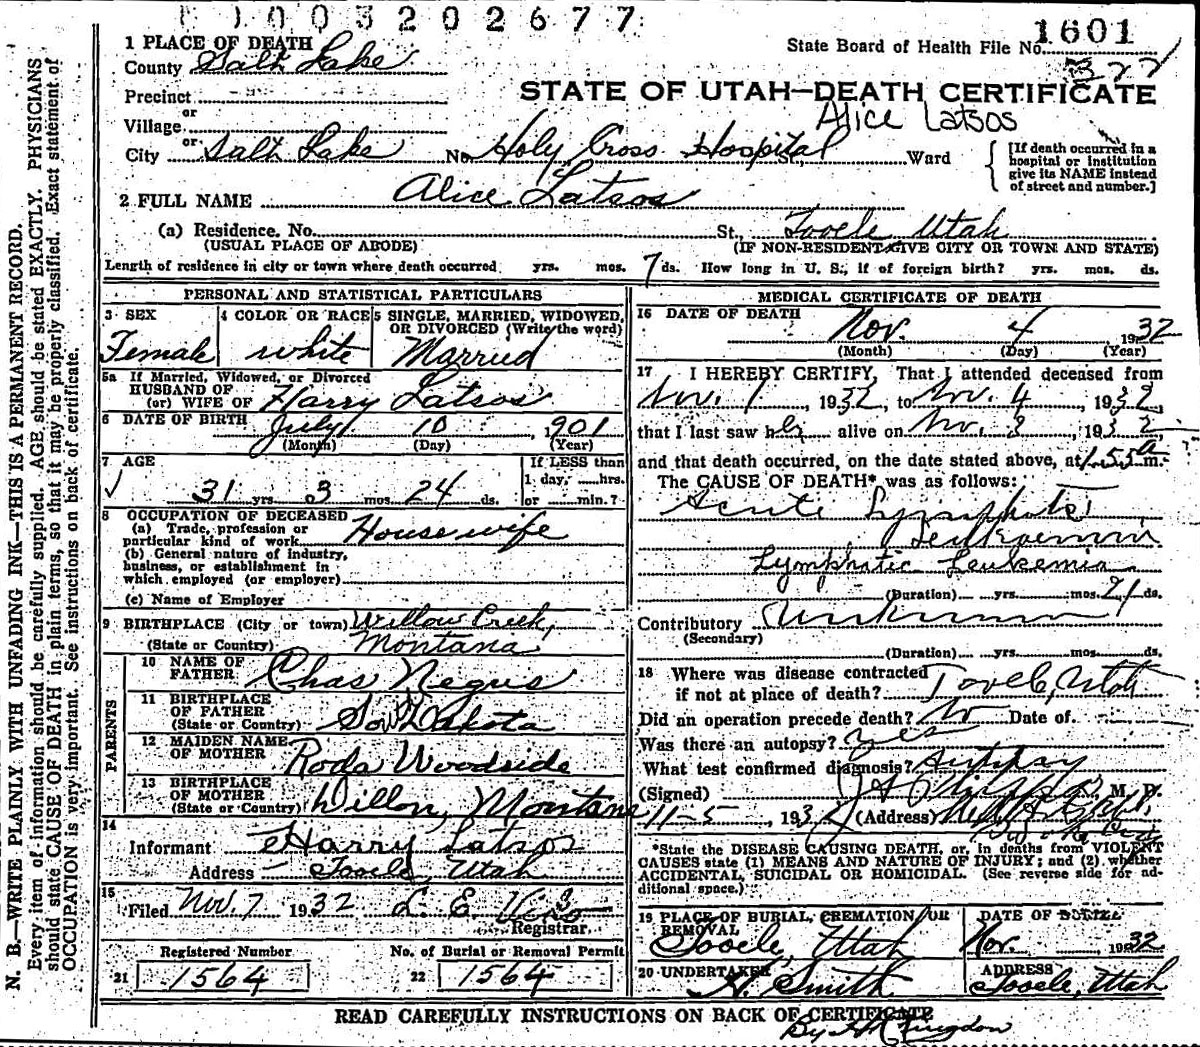 0 0 3 2 0 2 6 7 7
1601
State Board of Health File No.
322
1 PLACE OF DEATH
County Salt Lake
STATE OF UTAH—DEATH CERTIFICATE
Precinct
or
Village
Alice Latsos
or
City Salt Lake No. Holy Cross Hospital Ward
[If death occurred in a hospital or institution give its NAME instead of street and number.]
2 FULL NAME Alice Latsos
(a) Residence. No. St., Tooele Utah
(USUAL PLACE OF ABODE) (IF NON-RESIDENT GIVE CITY OR TOWN AND STATE)
Length of residence in city or town where death occurred yrs. mos. 7 ds. How long in U. S., if of foreign birth? yrs. mos. ds.
PERSONAL AND STATISTICAL PARTICULARS
3 SEX 4 COLOR OR RACE 5 SINGLE, MARRIED, WIDOWED, OR DIVORCED (Write the word)
Female white Married
5a If Married, Widowed, or Divorced
HUSBAND OF
(or) WIFE OF Harry Latsos
6 DATE OF BIRTH July 10, 1901
(Month) (Day) (Year)
7 AGE If LESS than
1 day, hrs.
31 yrs 3 mos. 24 ds. or min.?
8 OCCUPATION OF DECEASED
(a) Trade, profession or
particular kind of work Housewife
(b) General nature of industry,
business, or establishment in
which employed (or employer)
(c) Name of Employer
9 BIRTHPLACE (City or town) Willow Creek,
(State or Country) Montana
PARENTS
10 NAME OF
FATHER Chas Negus
11 BIRTHPLACE
OF FATHER
(State or Country) So. Dakota
12 MAIDEN NAME
OF MOTHER Roda Woodside
13 BIRTHPLACE
OF MOTHER
(State or Country) Dillon, Montana
14
Informant Harry Latsos
Address Tooele, Utah
15
Filed Nov. 7 1932 L. E.
Registrar
Registered Number No. of Burial or Removal Permit
21 1564 22 1564
MEDICAL CERTIFICATE OF DEATH
16 DATE OF DEATH
Nov. 4 1932
(Month) (Day) (Year)
17 I HEREBY CERTIFY, That I attended deceased from
Nov. 1, 1932, to Nov. 4, 1932,
that I last saw her alive on Nov. 3, 1932
and that death occurred, on the date stated above, at 1.55 a m.
The CAUSE OF DEATH* was as follows:
Acute Lymphatic
Leukaemia
Lymphatic Leukemia
(Duration) yrs. mos. 21 ds.
Contributory Unknown
(Secondary)
(Duration) yrs. mos. ds.
18 Where was disease contracted
if not at place of death? Tooele, Utah
Did an operation precede death? No Date of
Was there an autopsy? yes
What test confirmed diagnosis? Autopsy
(Signed) M. D.
11-5, 1932 (Address)
*State the DISEASE CAUSING DEATH, or, in deaths from VIOLENT
CAUSES state (1) MEANS AND NATURE OF INJURY; and (2) whether
ACCIDENTAL, SUICIDAL OR HOMICIDAL. (See reverse side for ad-
ditional space.)
19 PLACE OF BURIAL, CREMATION, OR REMOVAL DATE OF BURIAL
Tooele, Utah Nov. 1932
20 UNDERTAKER ADDRESS
H. Smith Tooele, Utah
READ CAREFULLY INSTRUCTIONS ON BACK OF CERTIFICATE
By
N. B.—WRITE PLAINLY WITH UNFADING INK—THIS IS A PERMANENT RECORD.
Every item of information should be carefully supplied. AGE should be stated EXACTLY. PHYSICIANS
should state CAUSE OF DEATH in plain terms, so that it may be properly classified. Exact statement of
OCCUPATION is very important. See instructions on back of certificate.